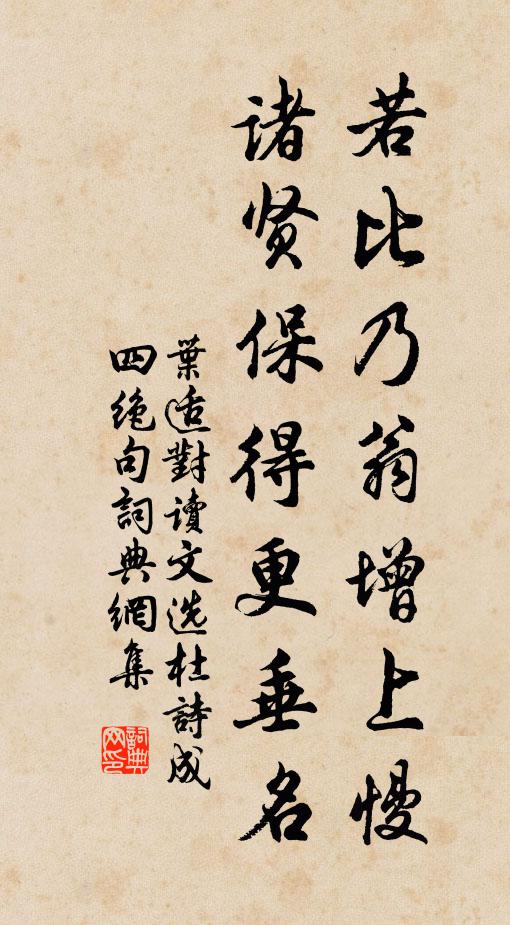 若比乃翁增上慢
诸贤保得更垂名
葉适對讀文选杜詩成
四绝句詞典網集
詞典网印